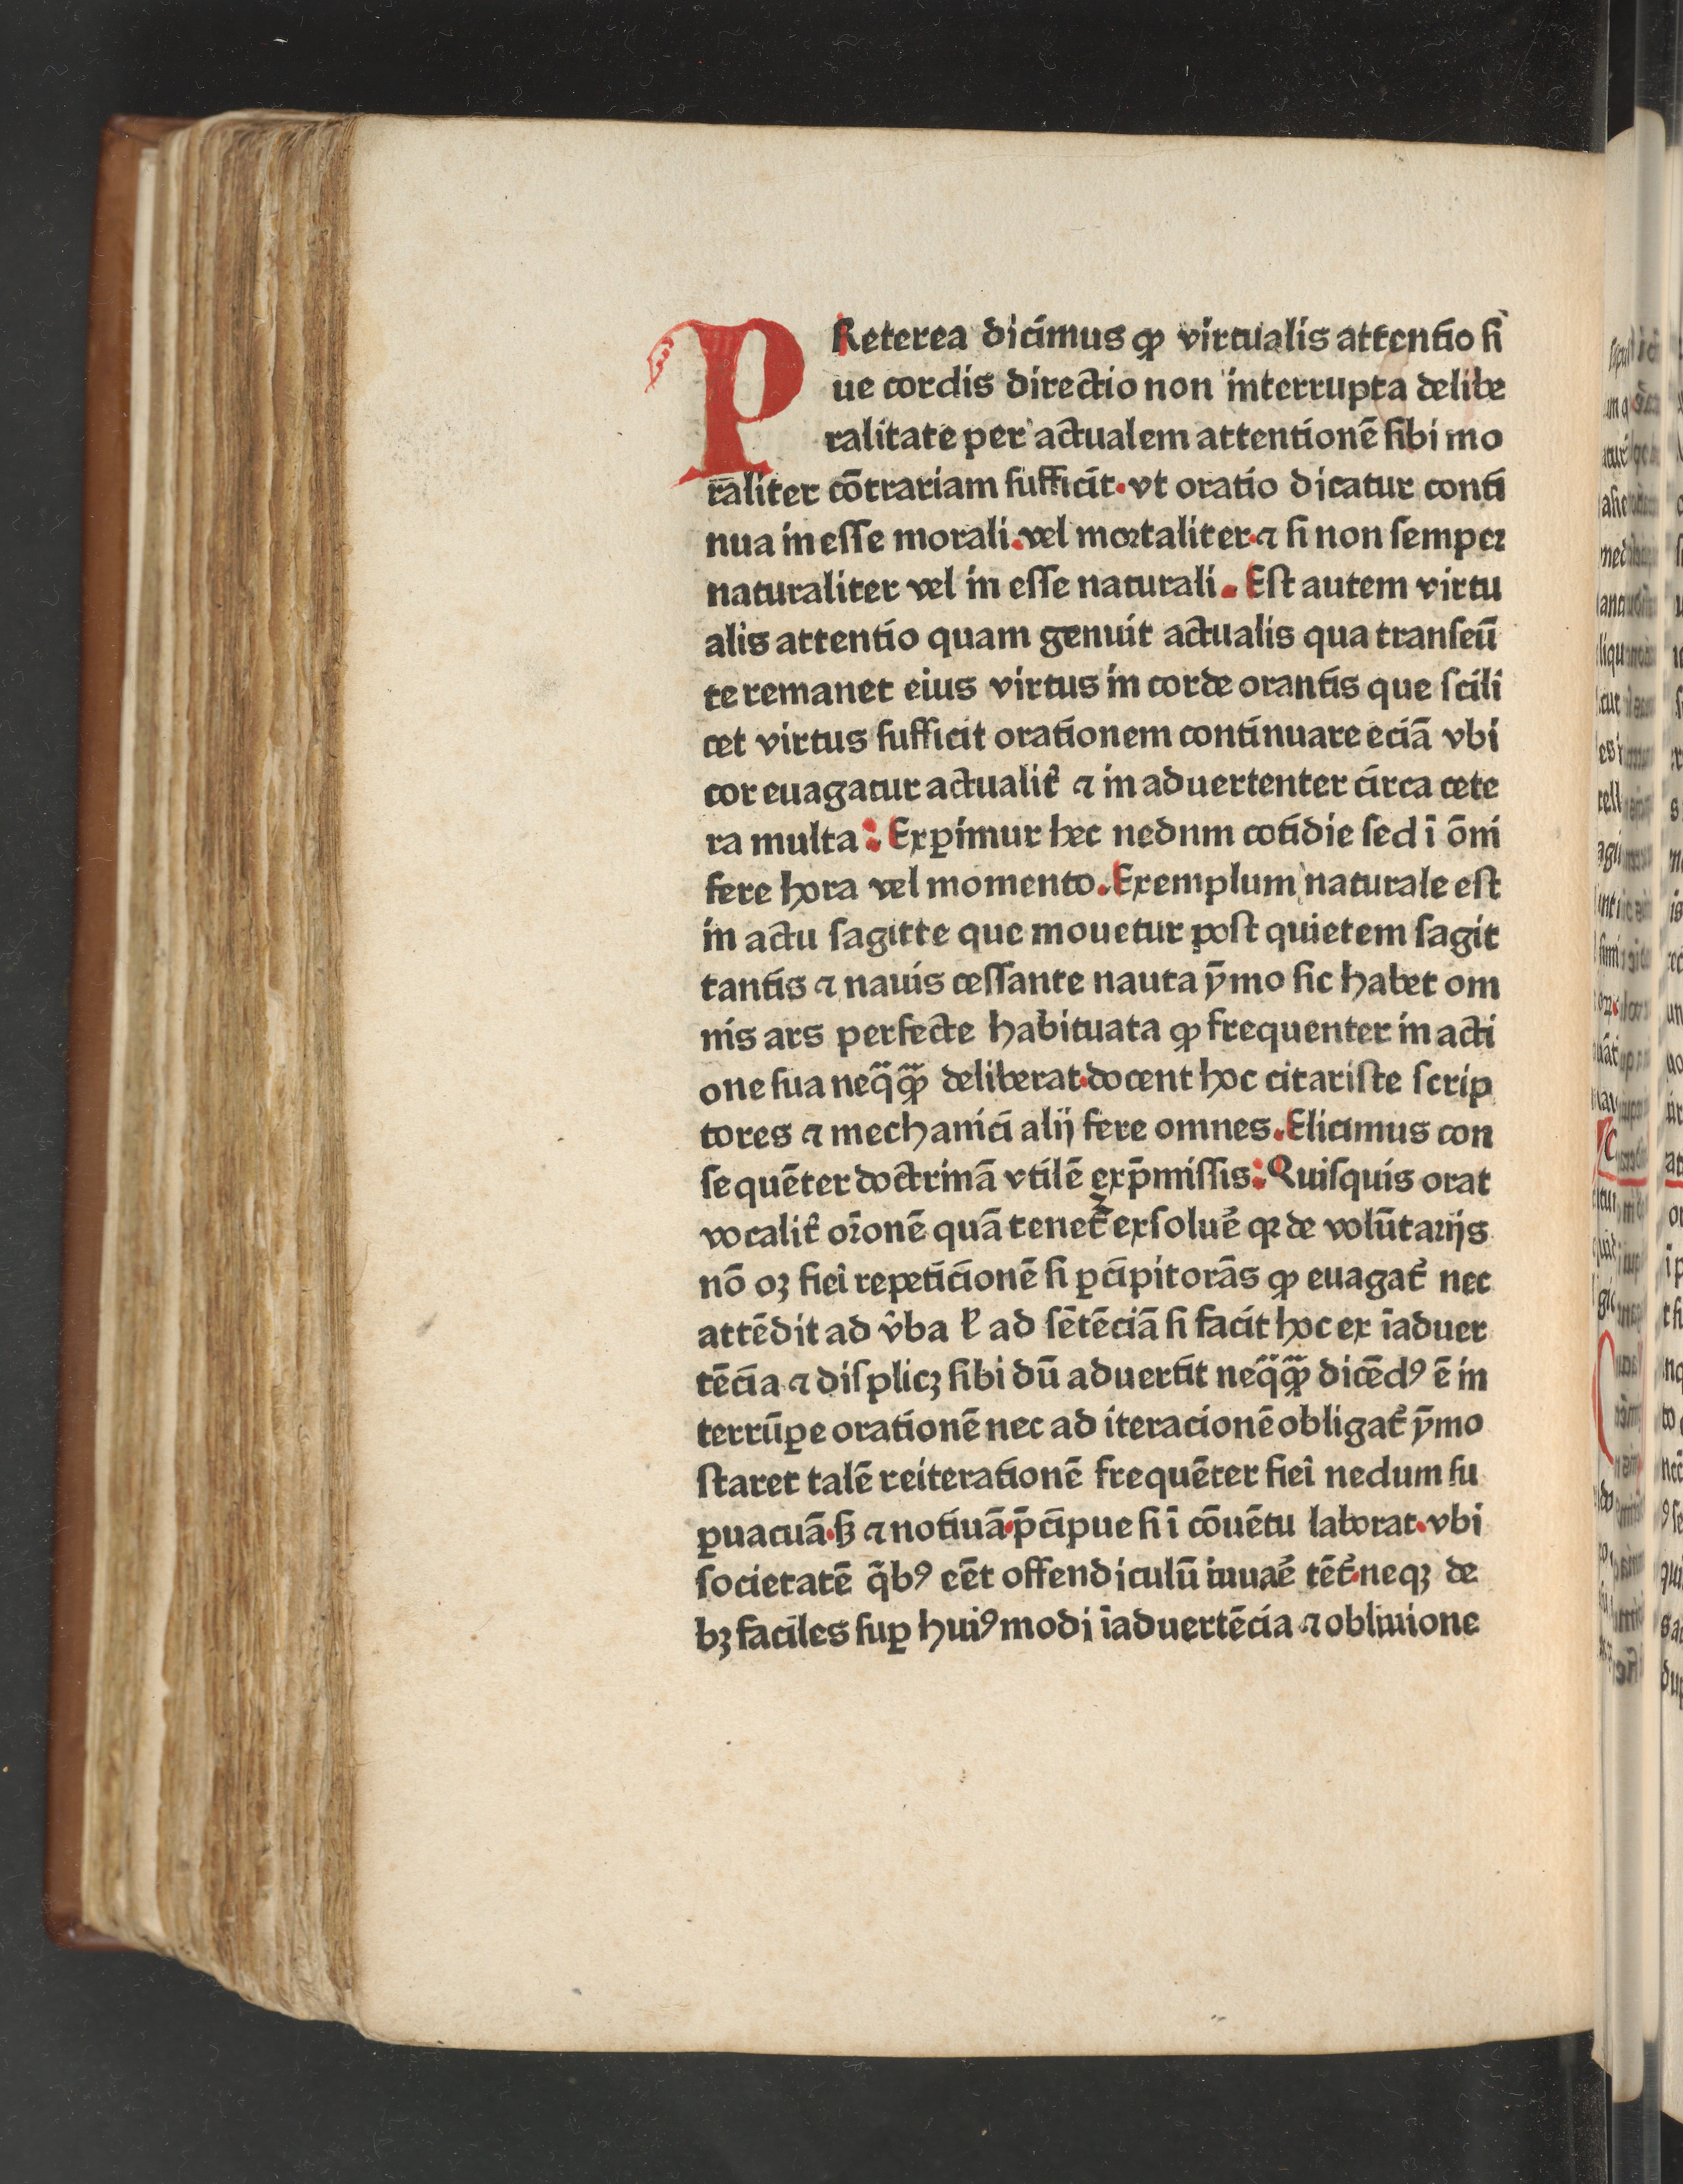 PReterea dicimus ꝙ virtualis attentio si
ue cordis directio non interrupta delibe
ralitate per actualem attentionē sibi mo
raliter cōtrariam sufficit·vt oratio dicatur conti
nua in esse morali.vel mortaliter·⁊ si non semper
naturaliter vel in esse naturali. Est autem virtu
alis attentio quam genuit actualis qua transeū
te remanet eius virtus in corde orantis que scili
cet virtus sufficit orationem continuare eciā vbi
cor euagatur actualit̉ ⁊ in aduertenter circa cete
ra multa: Exꝑimur hec nednm cotidie sed ī ōni
fere hora vel momento.Exemplum naturale est
in actu sagitte que mouetur post quietem sagit
tantis ⁊ nauis cessante nauta ȳmo sic habet om
nis ars perfecte habituata ꝙ frequenter in acti
one sua neq̈ꝙ̈ deliberat·docent hoc citariste scrip
tores ⁊ mechanici alij fere omnes.Elicimus con
sequēter doctrinā vtilē ex p̄missis:Quisquis orat
vocalit̉ or̄onē quā tenet̉ exsoluē qꝛ de volūtarijs
nō oꝫ fiei repeticionē si ꝑcipit orās ꝙ euagat̉ nec
attēdit ad v̉ba ł ad sētēciā si facit hoc ex īaduer
tēcia ⁊ displicꝫ sibi dū aduertit neq̈ꝙ̈ dicēdꝰ ē in
terrūꝑe orationē nec ad iteracionē obligat̉ ȳmo
staret talē reiterationē frequēter fiei nedum su
ꝑuacuā·sꝫ ⁊ notiuā·p̄cipue si ī cōuētu laborat·vbi
societatē q̄bꝰ eēt offendiculū iuuaē tēt̉·neqꝫ de
bꝫ faciles suꝑ huiꝰmodi īaduertēcia ⁊ obliuione